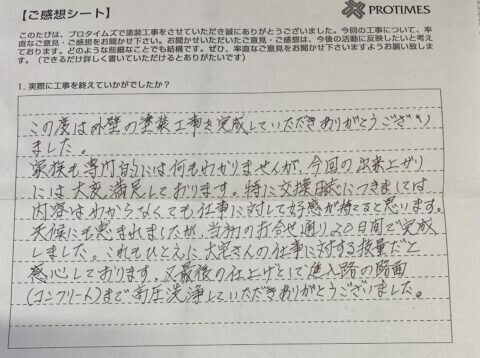 【ご感想シート】
PROTIMES
このたびは、プロタイムズで塗装工事をさせていただき誠にありがとうございました。今回の工事について、率
直なご意見・ご感想をお聞かせ下さい。お聞かせいただいたご意見・ご感想は、今後の活動に反映したいと考え
ております。どのような些細なことでも結構です。ぜひ、率直なご意見をお聞かせ下さいますようお願い致しま
す。（できるだけ詳しく書いていただけるとありがたいです）
1. 実際に工事を終えていかがでしたか？
この度は外壁の塗装工事を完成していただきありがとうござい
ました。
家族も専門的には何もわかりませんが、今回の出来上がり
には大変満足しております。特に交換日誌につきましては
内容はわからなくても仕事に対して好感が持てると思います。
天候にも恵まれましたが、当初の打合せ通り20日間で完成
しました。これもひとえに大宅さんの仕事に対する技量だと
感心しております。又最後の仕上げとして進入路の路面
(コンクリート)まで高圧洗浄していただきありがとうございました。